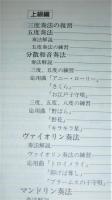 上級編
三度奏法の復習
五度奏法
奏法解説
五度奏法の練習
分散和音奏法
奏法解説
三度、五度の練習
応用曲「アニー・ローリー」
「さくら」
「お江戸子守唄」
三度、五度、八度の練習
応用曲「野ばら」
「野花」
「キラキラ星」
ヴァイオリン奏法
奏法解説
ヴァイオリン奏法の練習
応用曲「トロイメライ」
「荒城の月」
マンドリン奏法